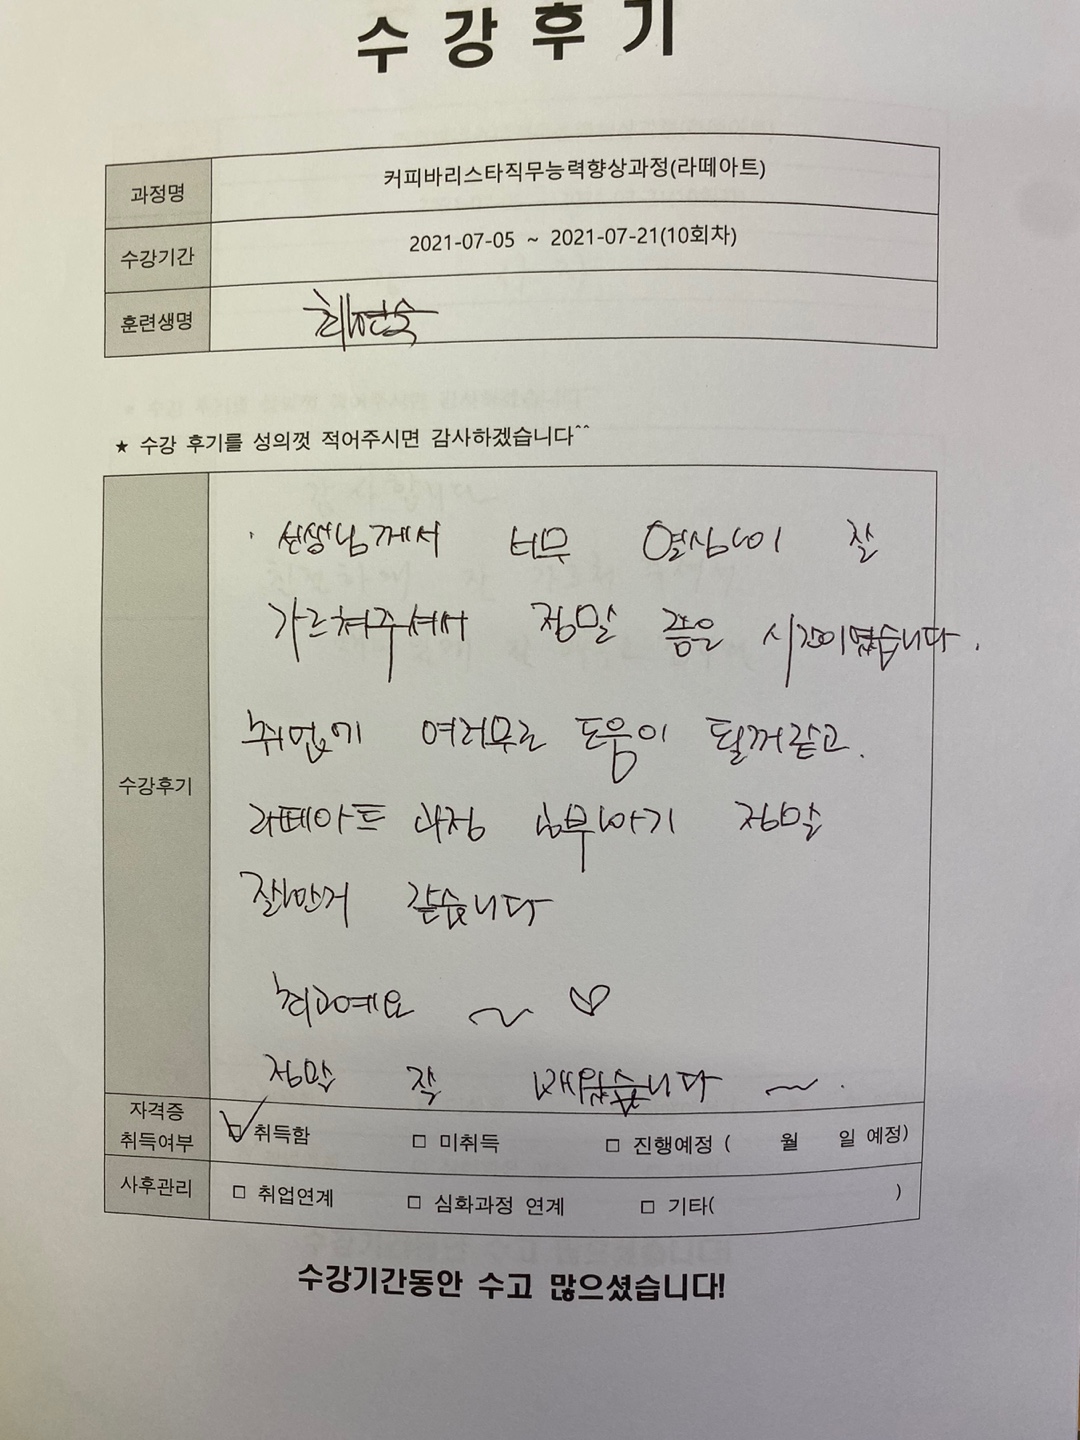 수강후기
과정명 커피바리스타직무능력향상과정(라떼아트)
수강기간 2021-07-05 ~ 2021-07-21(10회차)
훈련생명
★ 수강 후기를 성의껏 적어주시면 감사하겠습니다^^
수강후기
· 선생님께서 너무 열심히 잘
가르쳐주셔서 정말 좋은 시간이였습니다.
취업에 여러모로 도움이 될꺼같고.
라떼아트 과정 공부하기 정말
잘한거 같습니다
최고예요 ~ ♡
정말 잘 배웠습니다 ~.
자격증 취득여부 ☑ 취득함 □ 미취득 □ 진행예정 ( 월 일 예정)
사후관리 □ 취업연계 □ 심화과정 연계 □ 기타( )
수강기간동안 수고 많으셨습니다!